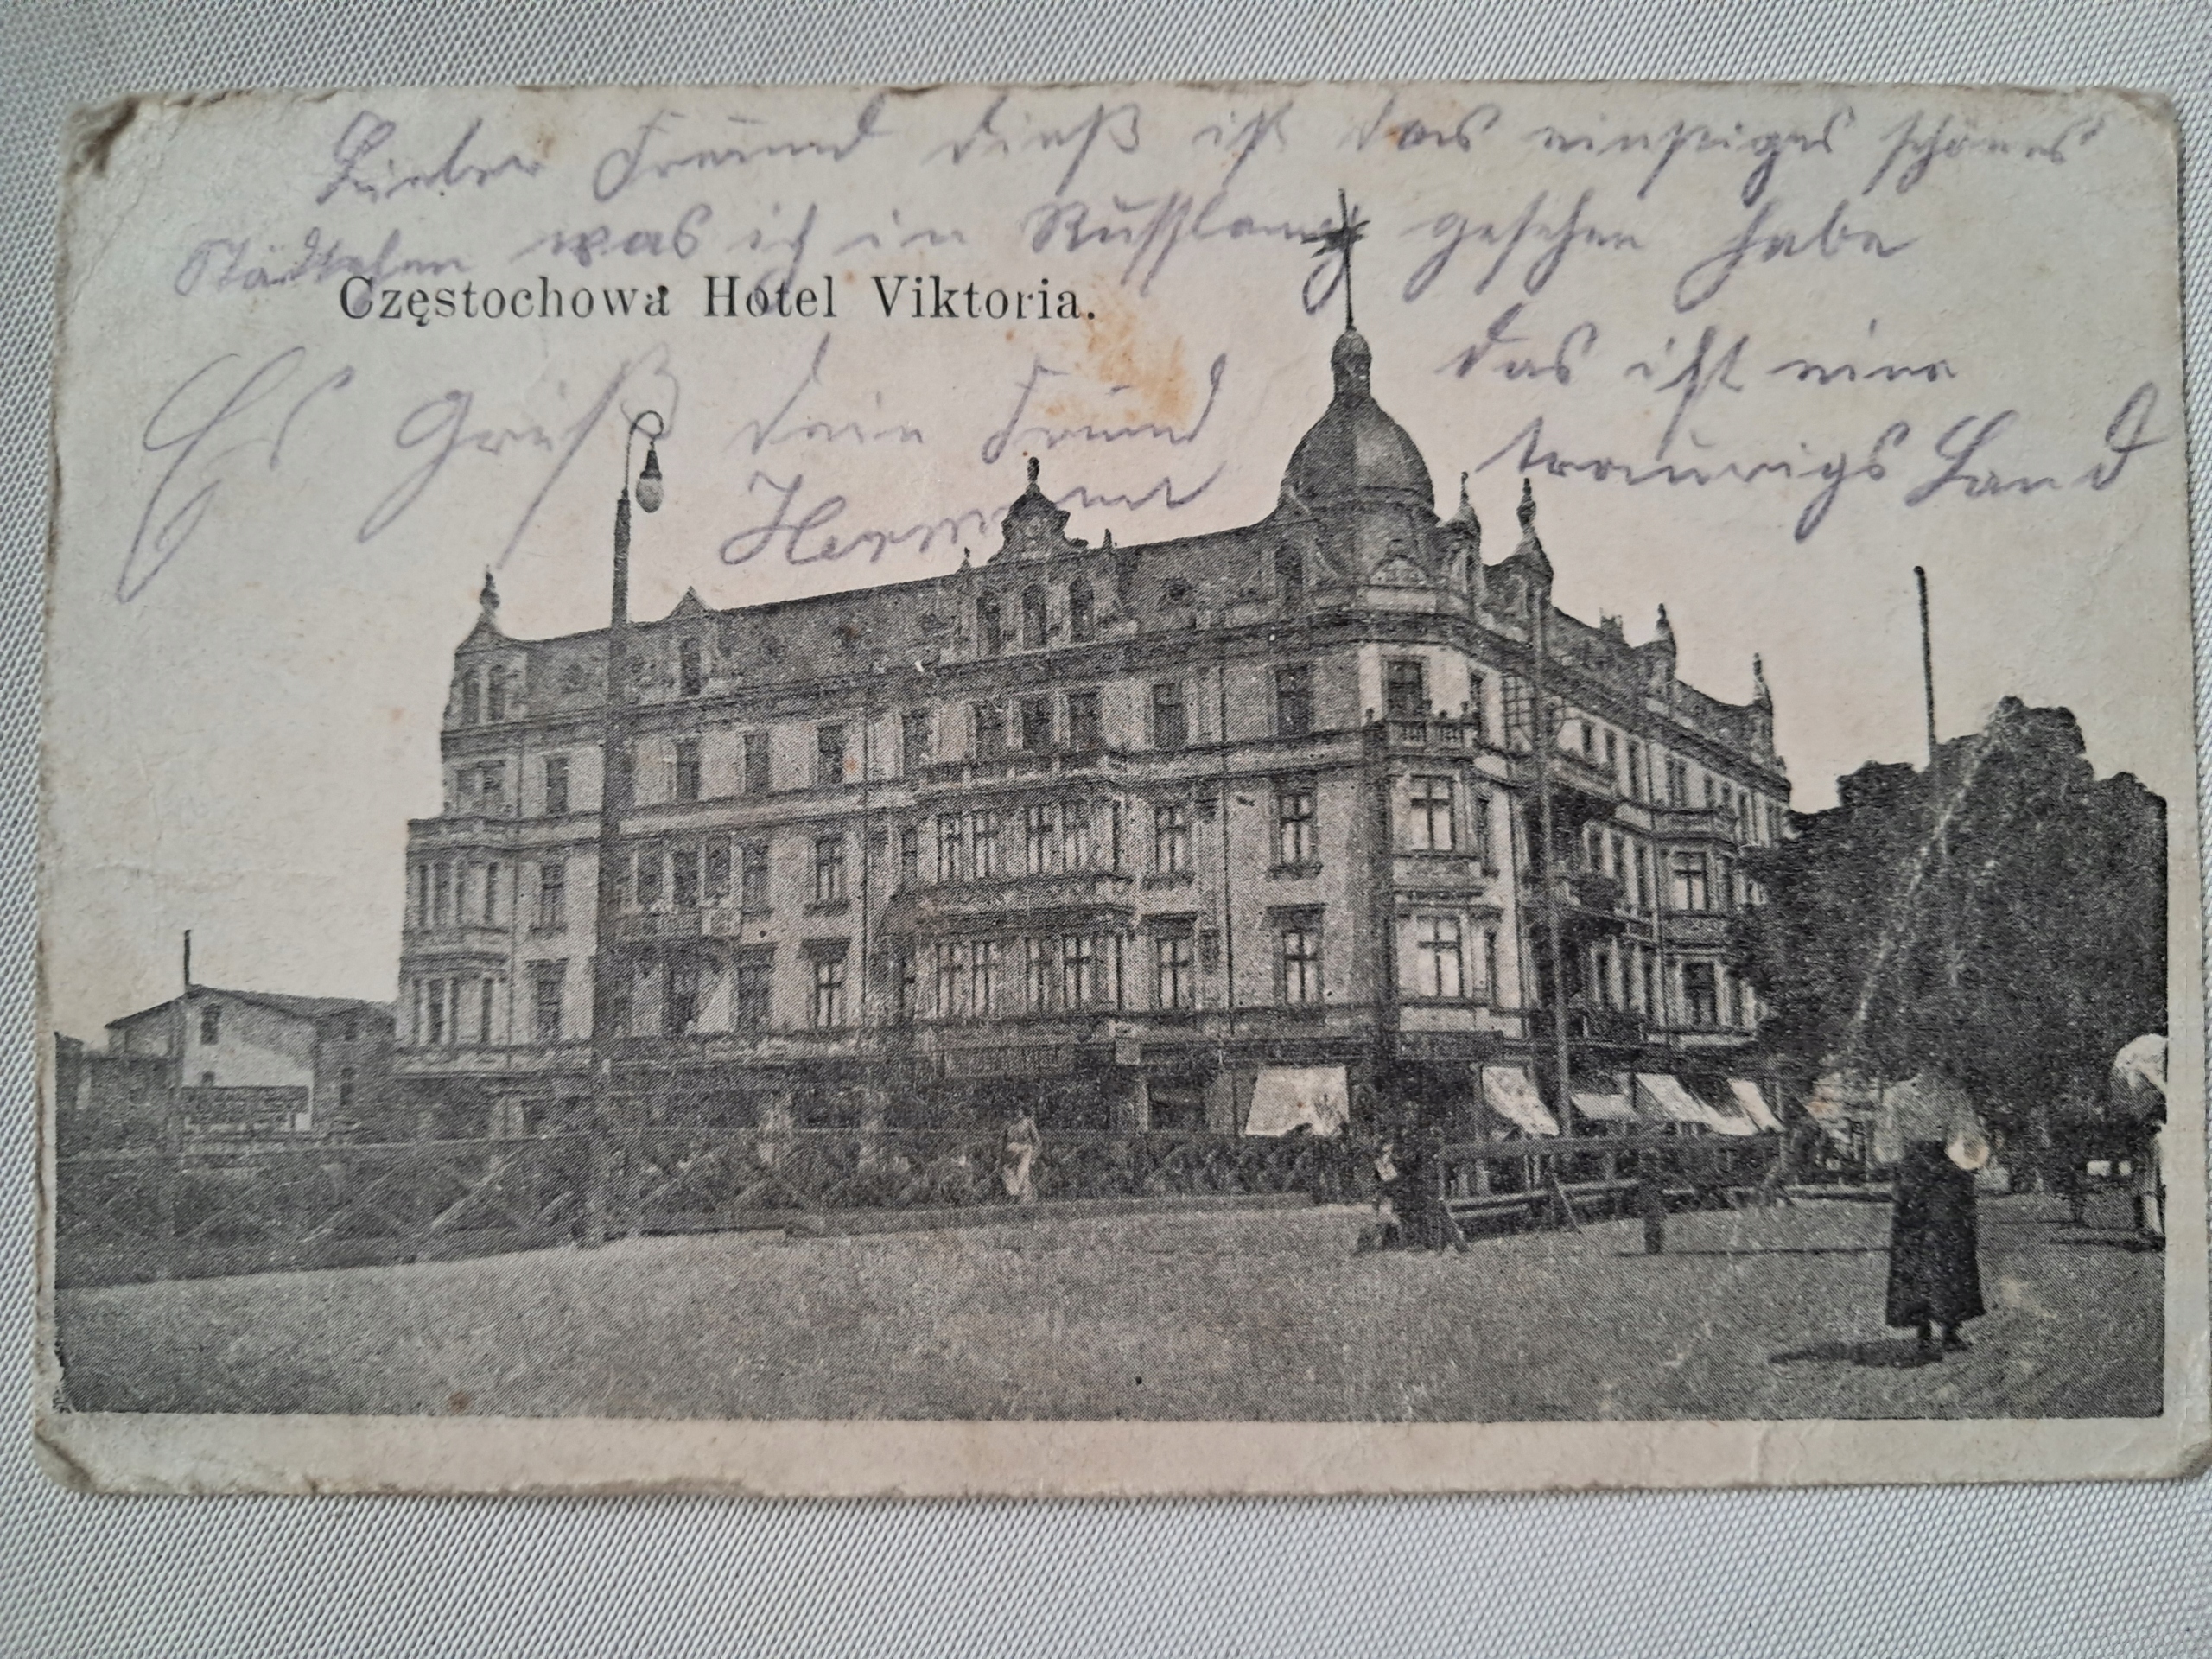 Lieber Freund dieß ist das einsiges schönes
Städtchen was ich in Russland gesehen habe
Częstochowa Hotel Viktoria.
das ist eine
traurigs Land
Es Grüß dein Freund
Hermann